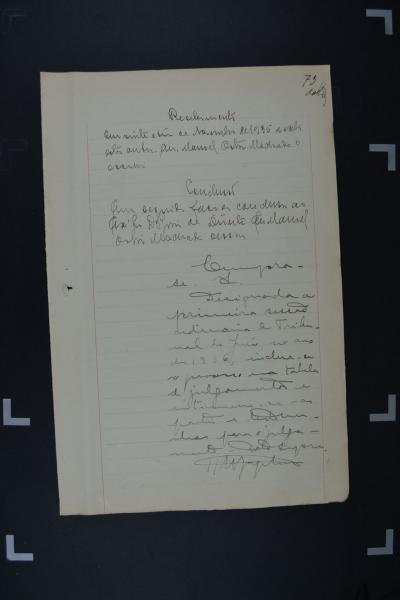 79
Recebimento
Em vinte e um de Novembro de 1935 recebi
estes autos. Eu, Manoel Machado o
escrevi
Conclusão
Em seguida faço os conclusos ao
Dr. Juiz de Direito. Eu Manoel
Machado escrevi
Cumpra-
se.
Designada a
primeira sessão
ordinaria do Tribu-
nal do Jury, no anno
de 1936, inclua-se
o processo na tabella
de julgamento e
intimem-se as
partes e testemu-
nhas para o julga-
mento.